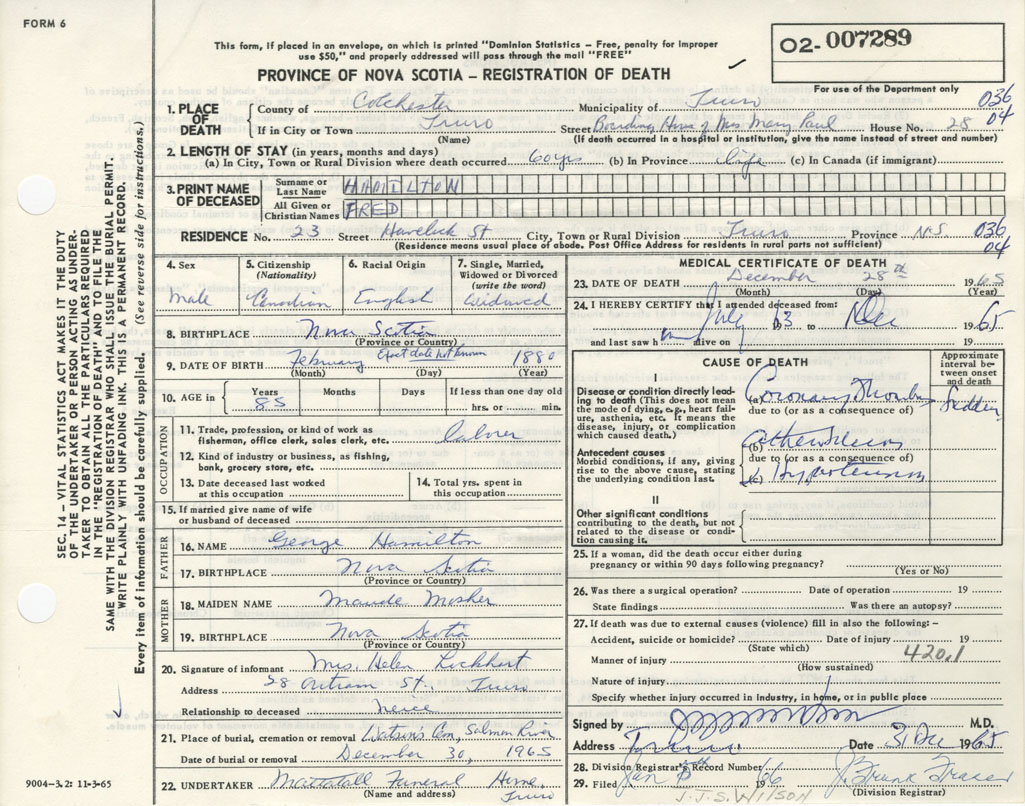 FORM 6
O2-007289
This form, if placed in an envelope, on which is printed "Dominion Statistics – Free, penalty for improper
use $50," and properly addressed will pass through the mail "FREE"
PROVINCE OF NOVA SCOTIA – REGISTRATION OF DEATH
For use of the Department only
036
04
1. PLACE OF DEATH County of Colchester Municipality of Truro
If in City or Town Truro Street Boarding House of Mrs Mary Paul House No. 28
(Name) (If death occurred in a hospital or institution, give the name instead of street and number)
2. LENGTH OF STAY (in years, months and days)
(a) In City, Town or Rural Division where death occurred 60 yrs (b) In Province life (c) In Canada (if immigrant)
3. PRINT NAME OF DECEASED
Surname or Last Name HAMILTON
All Given or Christian Names FRED
RESIDENCE No. 23 Street Havelock St City, Town or Rural Division Truro Province N.S.
036
04
(Residence means usual place of abode. Post Office Address for residents in rural parts not sufficient)
4. Sex Male
5. Citizenship (Nationality) Canadian
6. Racial Origin English
7. Single, Married, Widowed or Divorced (write the word) Widowed
8. BIRTHPLACE Nova Scotia
(Province or Country)
9. DATE OF BIRTH February Exact date not known 1880
(Month) (Day) (Year)
10. AGE in Years 85 Months Days If less than one day old
hrs. or min.
OCCUPATION
11. Trade, profession or kind of work as
fisherman, office clerk, sales clerk, etc. laborer
12. Kind of industry or business, as fishing,
bank, grocery store, etc.
13. Date deceased last worked
at this occupation
14. Total yrs. spent in
this occupation
15. If married give name of wife
or husband of deceased
FATHER
16. NAME George Hamilton
17. BIRTHPLACE Nova Scotia
(Province or Country)
MOTHER
18. MAIDEN NAME Maude Mosher
19. BIRTHPLACE Nova Scotia
(Province or Country)
20. Signature of informant Mrs. Helen Lockhart
Address 28 Outram St. Truro
Relationship to deceased neice
21. Place of burial, cremation or removal Watson's Cem, Salmon River
Date of burial or removal December 30, 1965
22. UNDERTAKER Mattatall Funeral Home
(Name and address) Truro
MEDICAL CERTIFICATE OF DEATH
23. DATE OF DEATH December 28th 1965
(Month) (Day) (Year)
24. I HEREBY CERTIFY that I attended deceased from:
July 13 to Dec 1965
and last saw h alive on 19
CAUSE OF DEATH
Approximate interval between onset and death
I
Disease or condition directly leading to death (This does not mean the mode of dying, e.g., heart failure, asthenia, etc. It means the disease, injury, or complication which caused death.)
Coronary Thrombosis Sudden
due to (or as a consequence of)
Antecedent causes
Morbid conditions, if any, giving rise to the above cause, stating the underlying condition last.
(b)
due to (or as a consequence of)
(c) Hypertension
II
Other significant conditions
contributing to the death, but not
related to the disease or condition causing it.
25. If a woman, did the death occur either during
pregnancy or within 90 days following pregnancy?
(Yes or No)
26. Was there a surgical operation? Date of operation 19
State findings Was there an autopsy?
27. If death was due to external causes (violence) fill in also the following:–
Accident, suicide or homicide? Date of injury 19
(State which)
420.1
Manner of injury
(How sustained)
Nature of injury
Specify whether injury occurred in Industry, in home, or in public place
Signed by M.D.
Address Truro Date 31 Dec 1965
28. Division Registrar's Record Number
29. Filed Jan 1966 J. Frank Fraser
(Division Registrar)
J.J.S. WILSON
SEC. 14 – VITAL STATISTICS ACT MAKES IT THE DUTY
OF THE UNDERTAKER OR PERSON ACTING AS UNDER-
TAKER TO OBTAIN ALL THE PARTICULARS REQUIRED
IN THE "REGISTRATION OF DEATH" AND TO FILE THE
SAME WITH THE DIVISION REGISTRAR WHO SHALL ISSUE THE BURIAL PERMIT.
WRITE PLAINLY WITH UNFADING INK. THIS IS A PERMANENT RECORD.
Every item of information should be carefully supplied. (See reverse side for instructions.)
9004-3.2: 11-3-65